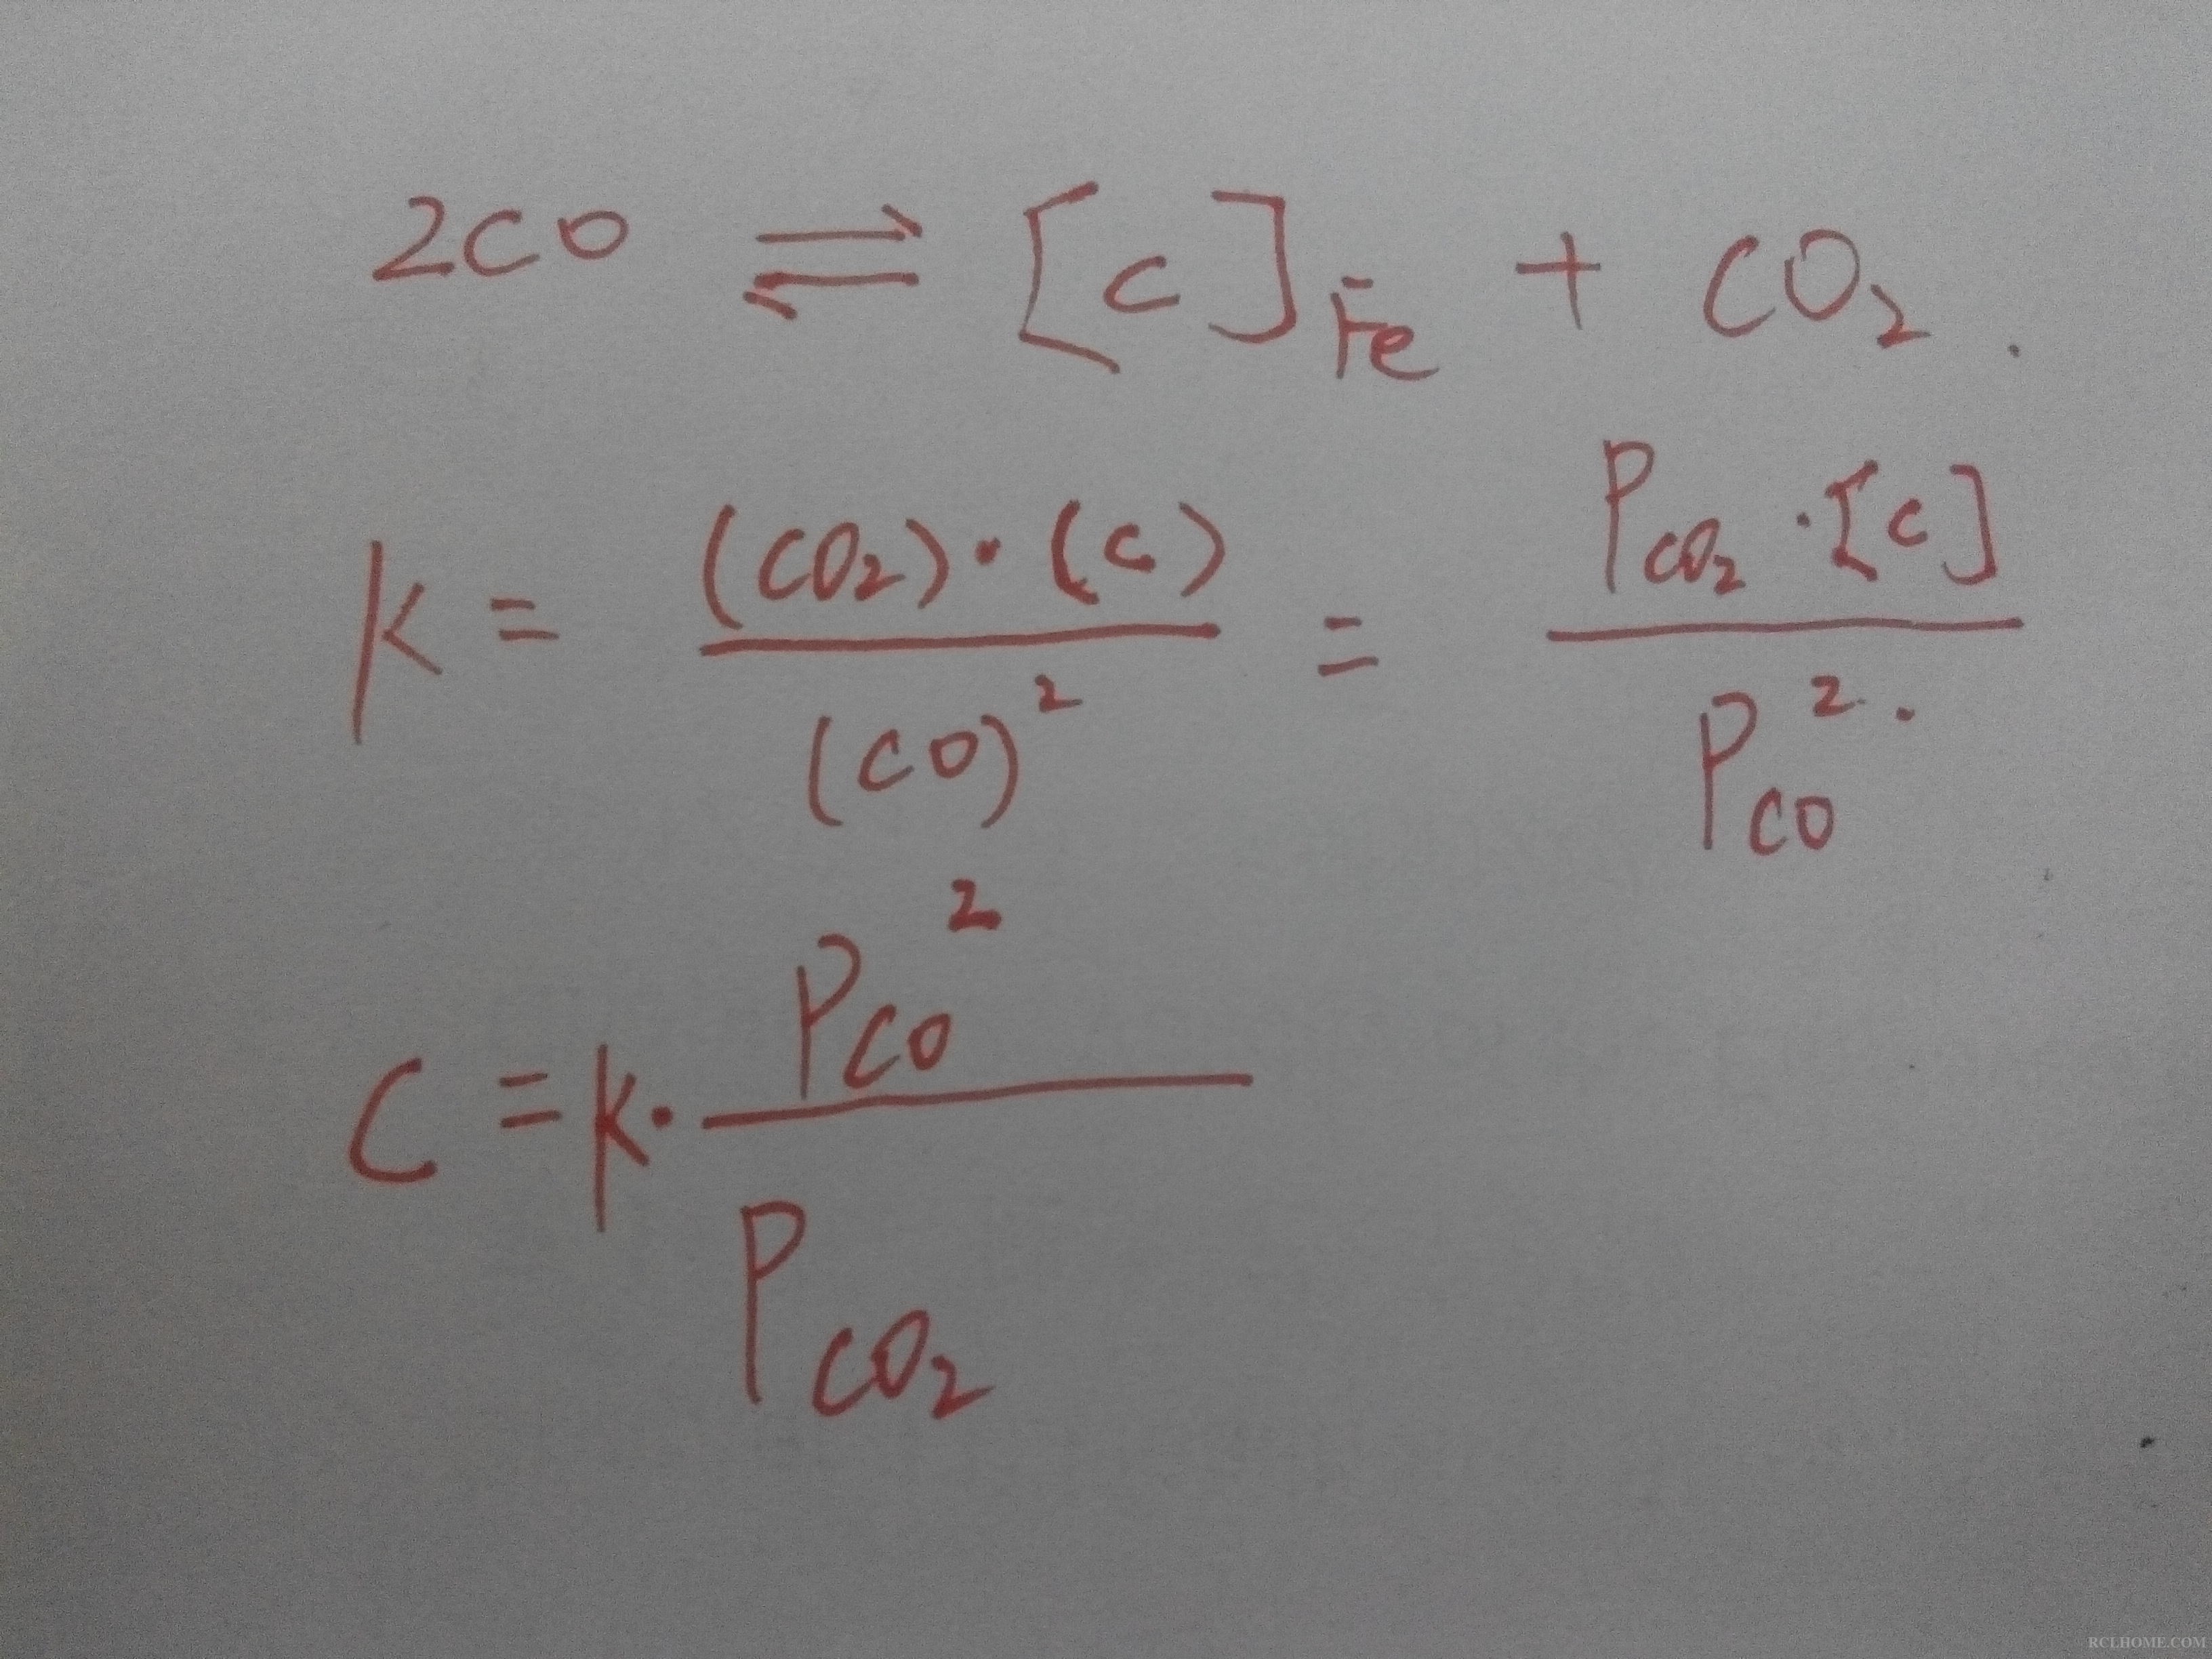 2CO ⇌ [C]Fe + CO₂.
K = (CO₂)·(C) / (CO)² = P_CO₂·[C] / P_CO².
C = K· P_CO² / P_CO₂
RCLHOME.COM